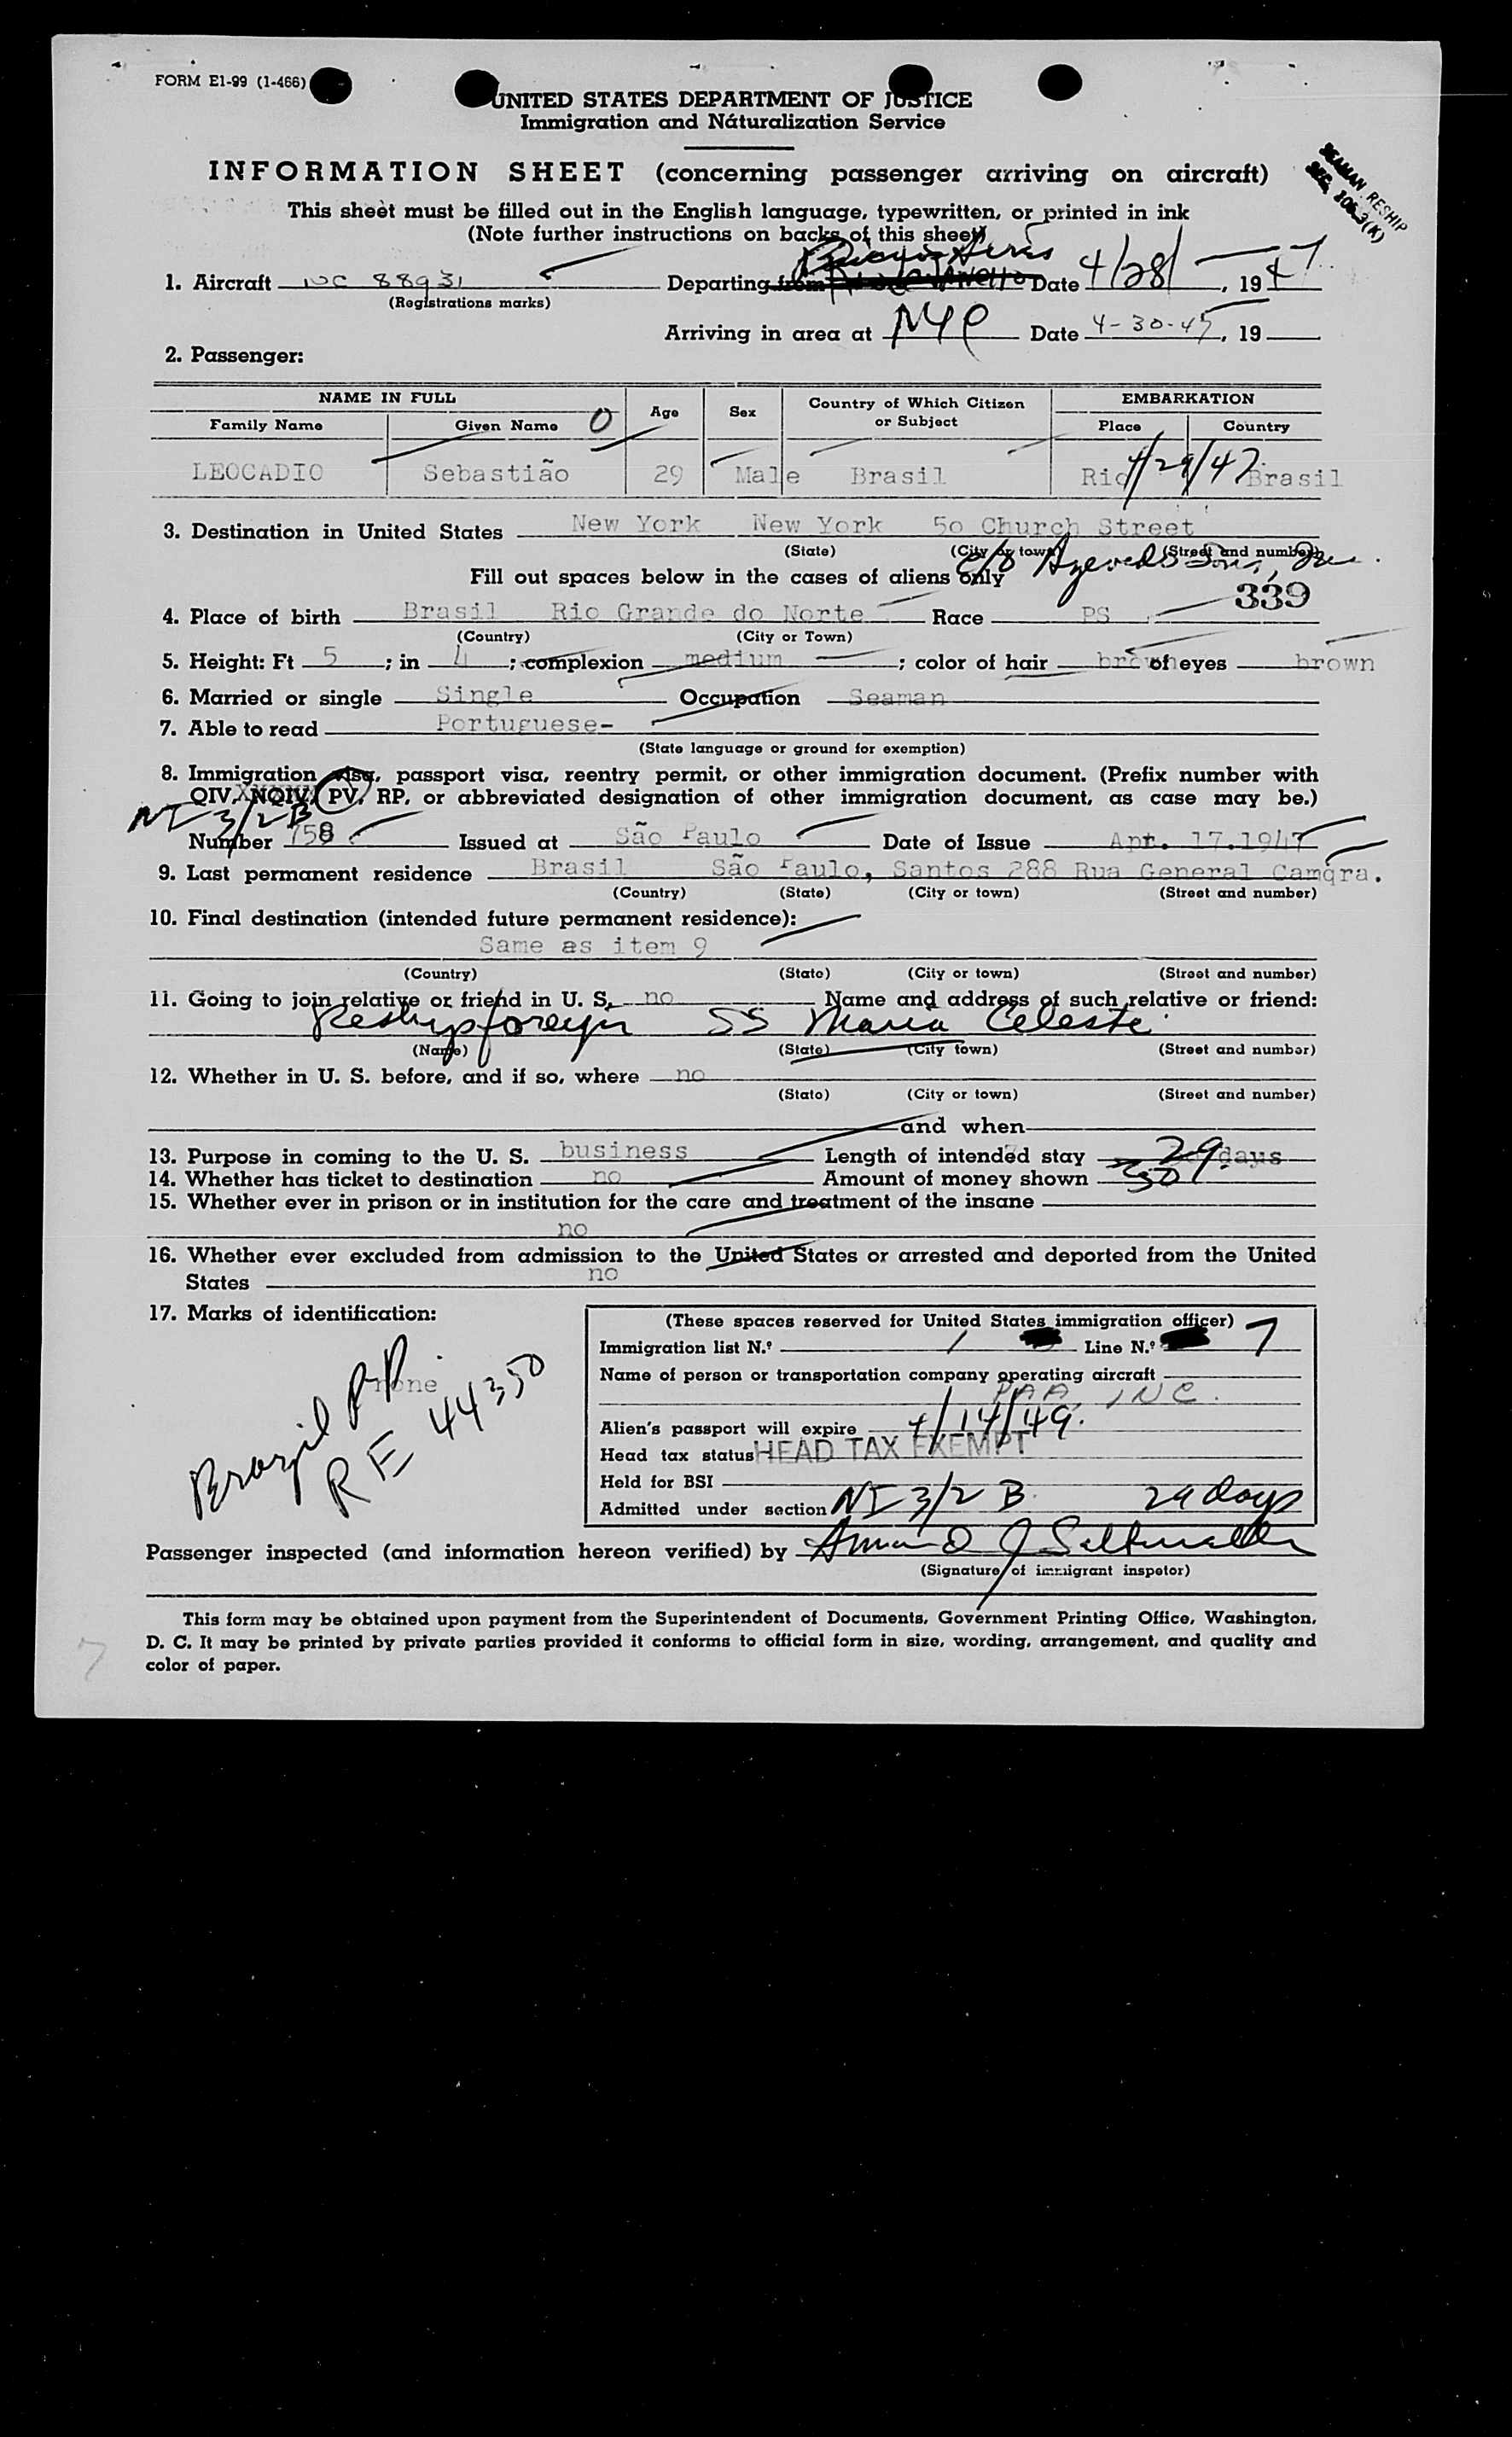 FORM E1-99 (1-466)
UNITED STATES DEPARTMENT OF JUSTICE
Immigration and Náturalization Service
INFORMATION SHEET (concerning passenger arriving on aircraft)
SEAMAN RESHIP
SEC. 106.3(K)
This sheet must be filled out in the English language, typewritten, or printed in ink
(Note further instructions on backs of this sheet)
Buenos Aires
1. Aircraft NC 88931 Departing from Date 4/28/, 1947
(Registrations marks)
Arriving in area at NYC Date 4-30-47, 19
2. Passenger:
NAME IN FULL Age Sex Country of Which Citizen or Subject EMBARKATION
Family Name Given Name O Place Country
LEOCADIO Sebastião 29 Male Brasil Rio 4/29/47 Brasil
3. Destination in United States New York New York 50 Church Street
(State) (City or town) (Street and number)
c/o Azevedo Sons, Inc.
Fill out spaces below in the cases of aliens only
339
4. Place of birth Brasil Rio Grande do Norte Race PS
(Country) (City or Town)
5. Height: Ft 5; in 4; complexion medium; color of hair brown of eyes brown
6. Married or single Single Occupation Seaman
7. Able to read Portuguese-
(State language or ground for exemption)
8. Immigration visa, passport visa, reentry permit, or other immigration document. (Prefix number with
QIV, NQIV, PV, RP, or abbreviated designation of other immigration document, as case may be.)
NI 3/2 B
Number 758 Issued at São Paulo Date of Issue Apr. 17.1947
9. Last permanent residence Brasil São Paulo, Santos 288 Rua General Camqra.
(Country) (State) (City or town) (Street and number)
10. Final destination (intended future permanent residence):
Same as item 9
(Country) (State) (City or town) (Street and number)
11. Going to join relative or friend in U. S. no Name and address of such relative or friend:
Reship foreign SS Maria Celeste
(Name) (State) (City town) (Street and number)
12. Whether in U. S. before, and if so, where no
(State) (City or town) (Street and number)
and when
13. Purpose in coming to the U. S. business Length of intended stay 29 days
14. Whether has ticket to destination no Amount of money shown
15. Whether ever in prison or in institution for the care and treatment of the insane
no
16. Whether ever excluded from admission to the United States or arrested and deported from the United
States no
17. Marks of identification:
none
Brazil PP
RE 44350
(These spaces reserved for United States immigration officer)
Immigration list N.º 1 Line N.º 7
Name of person or transportation company operating aircraft
PAA, INC.
Alien's passport will expire 4/14/49.
Head tax status HEAD TAX EXEMPT
Held for BSI
Admitted under section NI 3/2 B. 29 days
Passenger inspected (and information hereon verified) by
(Signature of immigrant inspetor)
This form may be obtained upon payment from the Superintendent of Documents, Government Printing Office, Washington,
D. C. It may be printed by private parties provided it conforms to official form in size, wording, arrangement, and quality and
color of paper.
7